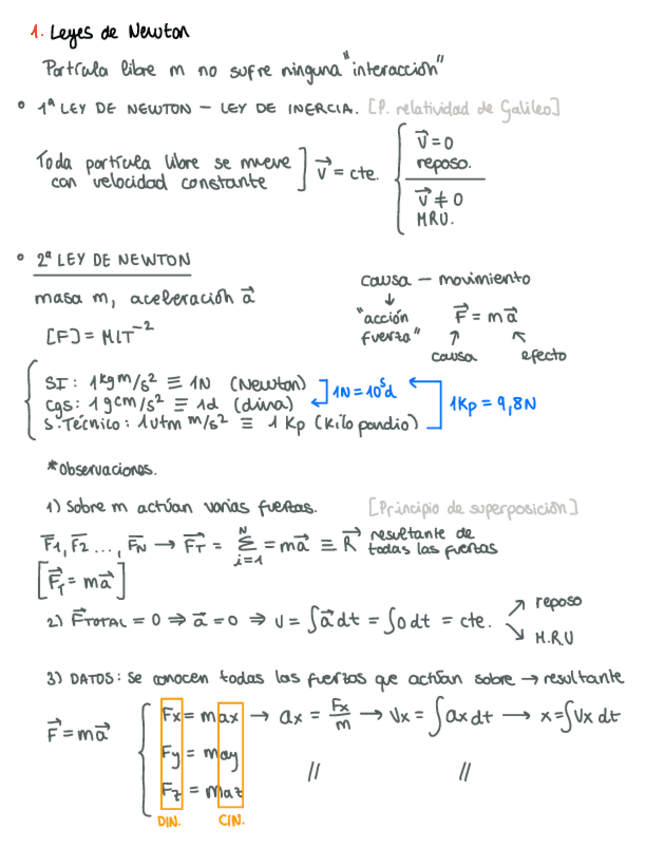 1. Leyes de Newton
Partícula libre m no sufre ninguna "interacción"
• 1ª LEY DE NEWTON – LEY DE INERCIA. [P. relatividad de Galileo]
Toda partícula libre se mueve con velocidad constante ] v⃗ = cte. { v⃗ = 0 reposo.
v⃗ ≠ 0 MRU.
• 2ª LEY DE NEWTON
masa m, aceleración a⃗
causa – movimiento
↓
"acción fuerza"
F⃗ = ma⃗
↑ ↖
causa efecto
[F] = MLT⁻²
SI: 1kg m/s² ≡ 1N (Newton)
cgs: 1 g cm/s² ≡ 1d (dina)
] 1N = 10⁵d
S. Técnico: 1utm m/s² ≡ 1 Kp (Kilo pondio)
1Kp = 9,8N
*Observaciones.
1) Sobre m actúan varias fuerzas. [Principio de superposición]
F⃗1, F⃗2 ..., F⃗N → F⃗T = Σ N i=1 = ma⃗ ≡ R⃗ resultante de todas las fuerzas
[F⃗T = ma⃗]
2) F⃗TOTAL = 0 ⇒ a⃗ = 0 ⇒ v = ∫a⃗ dt = ∫0 dt = cte. ↗ reposo
↘ M.R.U
3) DATOS: Se conocen todas las fuerzas que actúan sobre → resultante
F⃗ = ma⃗ { Fx = max → ax = Fx/m → Vx = ∫ax dt → x = ∫Vx dt
Fy = may
// //
Fz = maz
DIN. CIN.